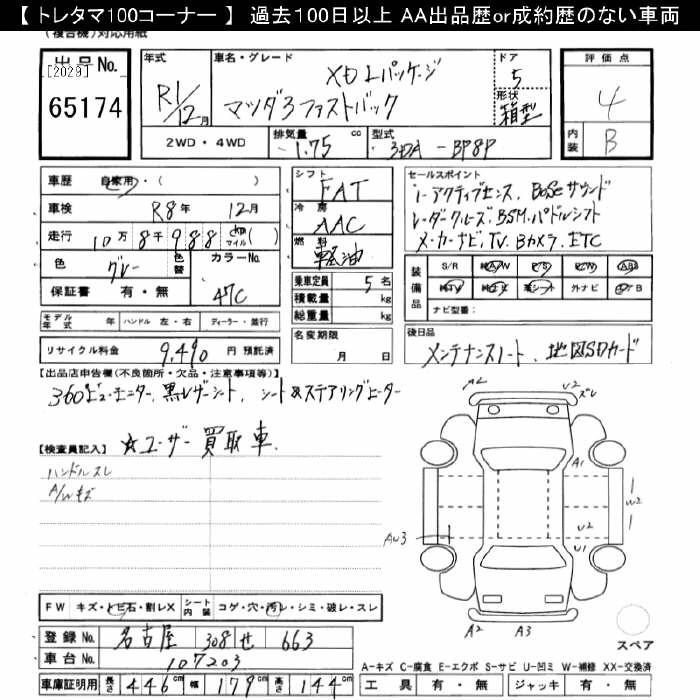 【 トレタマ100コーナー 】 過去100日以上 AA出品歴or成約歴のない車両
(複合機)対応用紙
出品No.
[2029]
65174
年式
R1/12月
車名・グレード
XD Lパッケージ
マツダ3 ファストバック
ドア
5
形状
箱型
評価点
4
内装
B
2WD・4WD
排気量
1.75 cc
型式
3DA - BP8P
車歴 自家用・( )
車検 R8年 12月
走行 10万8千988 km マイル( )
色 グレー
色替
カラーNo.
47C
保証書 有・無
シフト
FAT
冷房
AAC
燃料
軽油
乗車定員 5名
積載量 kg
総重量 kg
セールスポイント
i-アクティブセンス、BOSEサウンド
レーダークルーズ、BSM、パドルシフト
メーカーナビ、TV、Bカメラ、ETC
装備品
S/R A/W P/S P/W AB
革シート 外ナビ
ナビ型番:
モデル年式 年 ハンドル 左・右 ディーラー・並行
リサイクル料金 9,490 円 預託済
名変期限
月 日
後日品
メンテナンスノート、地図SDカード
【出品店申告欄(不良箇所・欠品・注意事項等)】
360°ビューモニター、黒レザーシート、シート&ステアリングヒーター
【検査員記入】 ☆ユーザー買取車
ハンドルスレ
A/Wキズ
A2
U2
ズレ
A1
W2
U2
U1
AU3
A2
A3
スペア
FW キズ・トビ石・割レX シート内装 コゲ・穴・汚レ・シミ・破レ・スレ
登録No. 名古屋 308 せ 663
車台No. 107203
車庫証明用 長さ 446cm 幅 179cm 高さ 144cm
A-キズ C-腐食 E-エクボ S-サビ U-凹ミ W-補修 XX-交換済
工具 有・無 ジャッキ 有・無